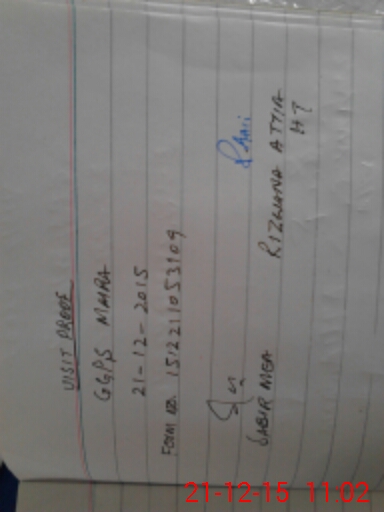 VISIT PROOF
GGPS MAHRA
21-12-2015
FORM NO. 1512211053109
SABIR MEA
RIZWANA ATTIA
HT
21-12-15 11:02